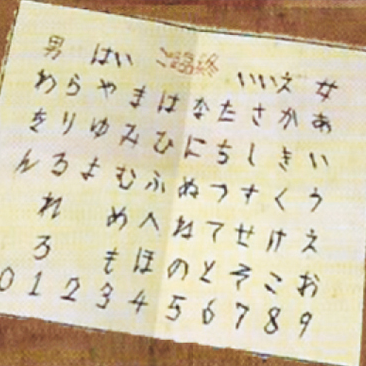 男 はい ご臨終 いいえ 女
わ ら や ま は な た さ か あ
を り ゆ み ひ に ち し き い
ん る よ む ふ ぬ つ す く う
れ め へ ね て せ け え
ろ も ほ の と そ こ お
0 1 2 3 4 5 6 7 8 9